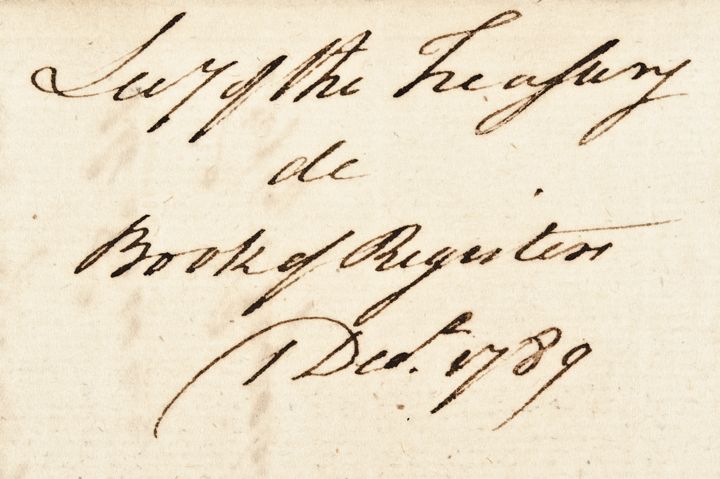 Secy of the Treasury
de
Book of Registers
1 Decr. 1789